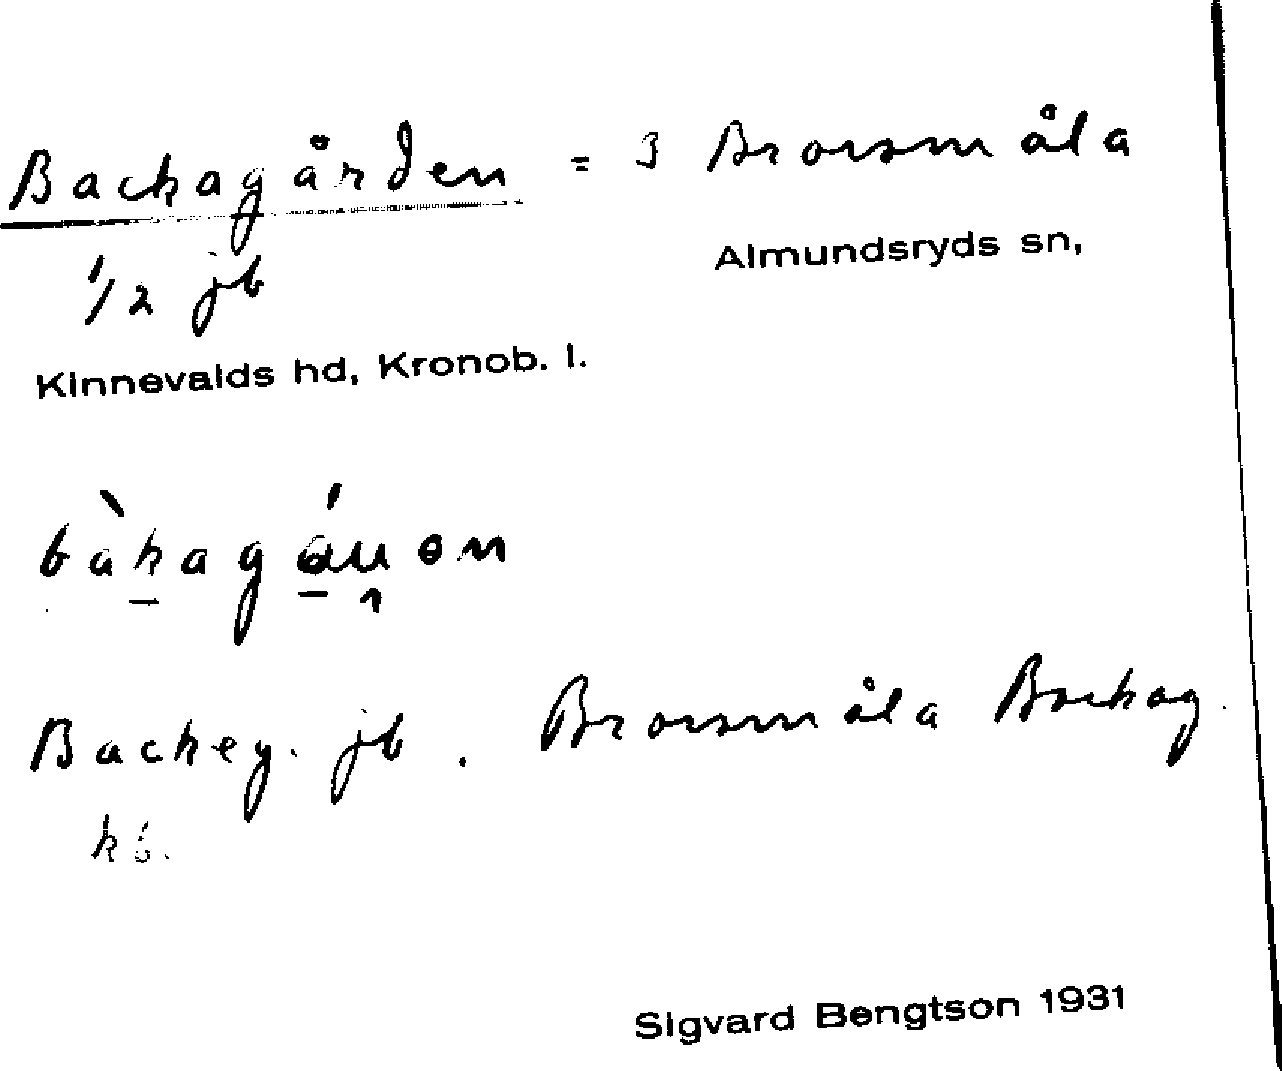 Backagården = 3 Brorsmåla
Almundsryds sn,
1/2 jb
Kinnevalds hd, Kronob. l.
bàkagáuen
Backeg. jb. Brorsmåla Backag.
kb.
Sigvard Bengtson 1931